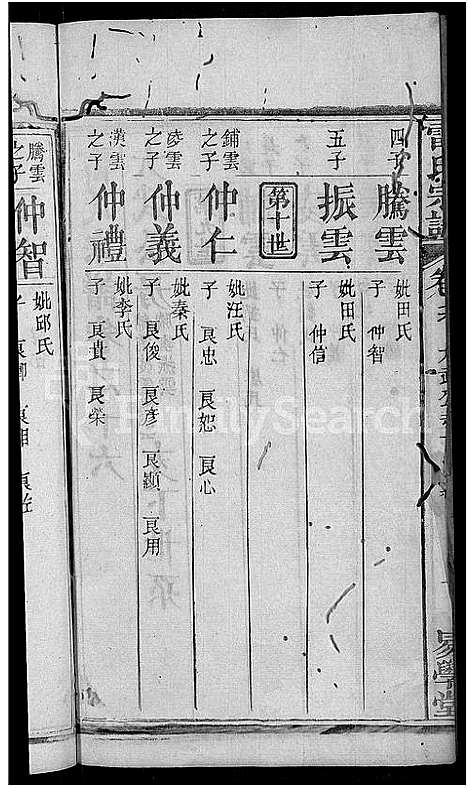 四子 騰雲 妣田氏
子 仲智
五子 振雲 妣田氏
子 仲信
第十世
鋪雲之子 仲仁 妣汪氏
子 良忠 良恕 良心
陵雲之子 仲義 妣秦氏
子 良俊 良彥 良顯 良用
漢雲之子 仲禮 妣李氏
子 良貴 良榮
騰雲之子 仲智 妣邱氏
易學堂
FamilySearch